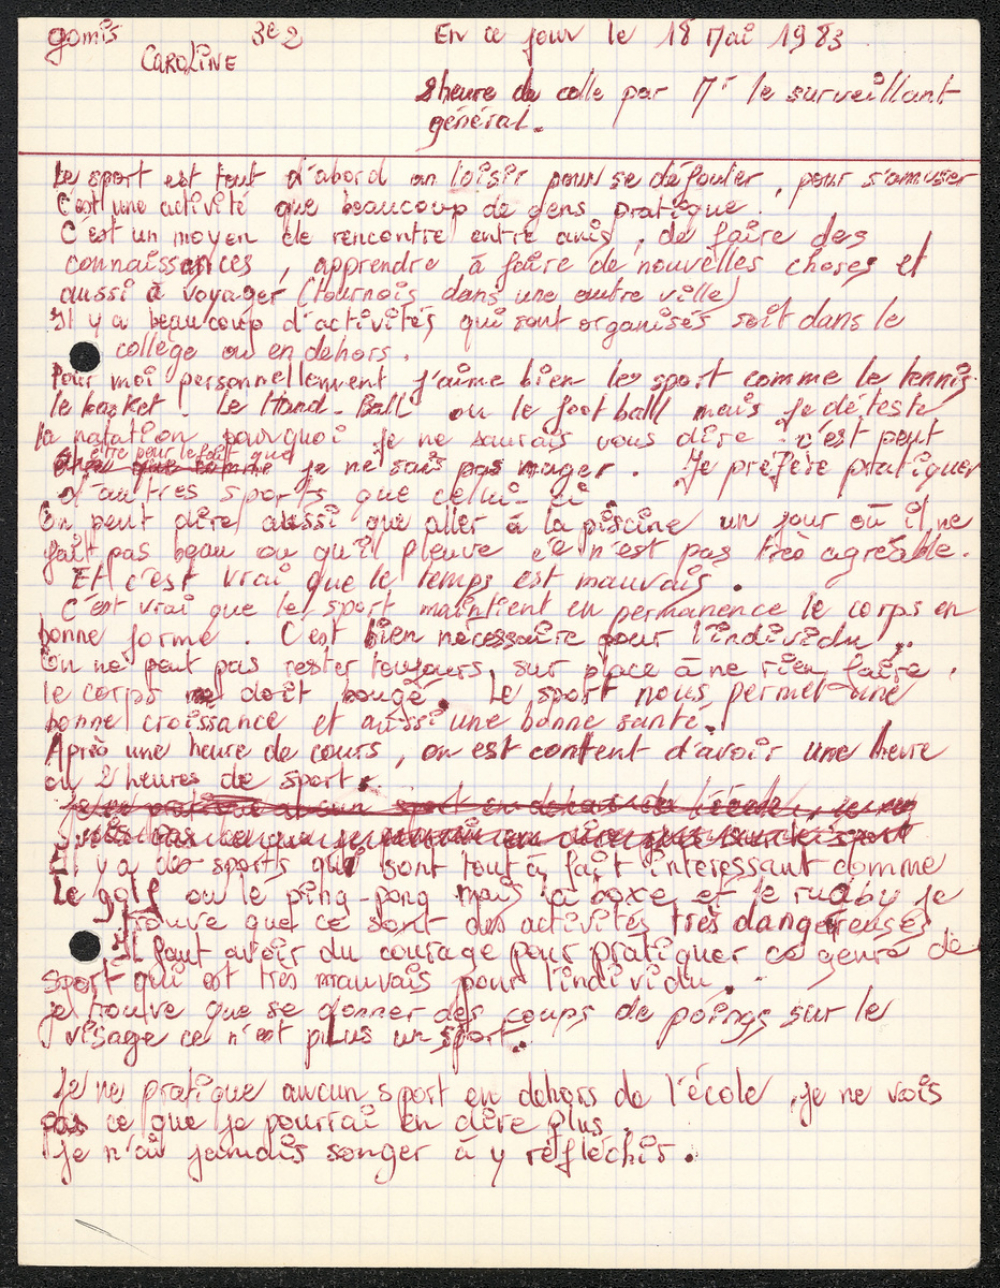 gomis 3e2 En ce jour le 18 Mai 1983
CAROLINE
2heure de colle par Mr le surveillant
général.
Le sport est tout d'abord un loisir pour se défouler, pour s'amuser
C'est une activité que beaucoup de gens pratique.
C'est un moyen de rencontre entre amis, de faire des
connaissances, apprendre à faire de nouvelles choses et
aussi à voyager (tournois dans une autre ville)
Il y a beaucoup d'activités qui sont organisés soit dans le
collège ou en dehors.
Pour moi personnellement j'aime bien les sport comme le tennis
le basket. Le Hand-Ball ou le foot ball mais je déteste
la natation pourquoi je ne saurais vous dire : c'est peut
être pour le fait que
je ne sais pas nager. Je préfère pratiquer
d'autres sports que celui-ci.
On peut dire aussi que aller à la piscine un jour où il ne
fait pas beau ou qu'il pleuve ce n'est pas très agréable.
Et c'est vrai que le temps est mauvais.
C'est vrai que le sport maintient en permanence le corps en
bonne forme. C'est bien nécessaire pour l'individu.
On ne peut pas rester toujours sur place à ne rien faire.
le corps doit bougé. Le sport nous permet une
bonne croissance et aussi une bonne santé.
Après une heure de cours, on est content d'avoir une heure
ou 2 heures de sport.
je ne pratique aucun sport en dehors de l'école, je ne
vois pas ce que je pourrai en dire plus sur le sport
Il y a des sports qui sont tout à fait interessant comme
Le golf ou le ping-pong mais la boxe et le rugby je
trouve que ce sont des activités très dangereuses
Il faut avoir du courage pour pratiquer ce genre de
sport qui est très mauvais pour l'individu.
je trouve que se donner des coups de poings sur le
visage ce n'est plus un sport.
Je ne pratique aucun sport en dehors de l'école, je ne vois
pas ce que je pourrai en dire plus.
je n'ai jamais songer à y réfléchir.